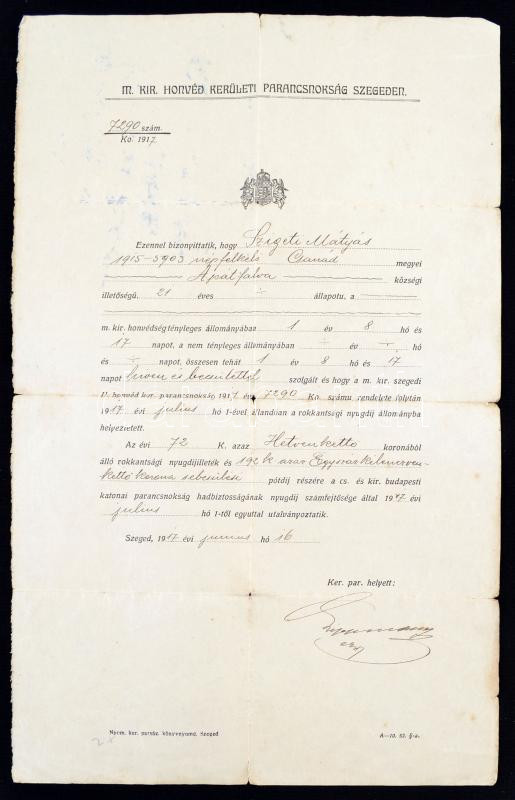 M. KIR. HONVÉD KERÜLETI PARANCSNOKSÁG SZEGEDEN.
7290 szám.
Kö. 1917
Ezennel bizonyittatik, hogy Szigeti Mátyás
1915-5903 népfelkelő Csanád megyei
Apátfalva községi
illetőségű, 21 éves ÷ állapotu, a
m. kir. honvédség tényleges állományában 1 év 8 hó és
17 napot, a nem tényleges állományában ÷ év ÷ hó
és ÷ napot, összesen tehát 1 év 8 hó és 17
napot hiven és becsülettel szolgált és hogy a m. kir. szegedi
V. honvéd ker. parancsnokság 1917 évi 7290 Kö. számu rendelete folytán
1917 évi julius hó 1-ével állandóan a rokkantsági nyugdij állományba
helyezvetett.
Az évi 72 K. azaz Hetvenkettő koronából
álló rokkantsági nyugdijilleték és 192 k azaz Egyszázkilencven-
kettő korona sebesülési pótdij részére a cs. és kir. budapesti
katonai parancsnokság hadbiztosságának nyugdij számfejtősége által 1917 évi
julius hó 1-től egyuttal utalványoztatik.
Szeged, 1917 évi junius hó 16
Ker. par. helyett:
Nyom. ker. parság. könyvnyomd. Szeged
A—10. 63. §-a.